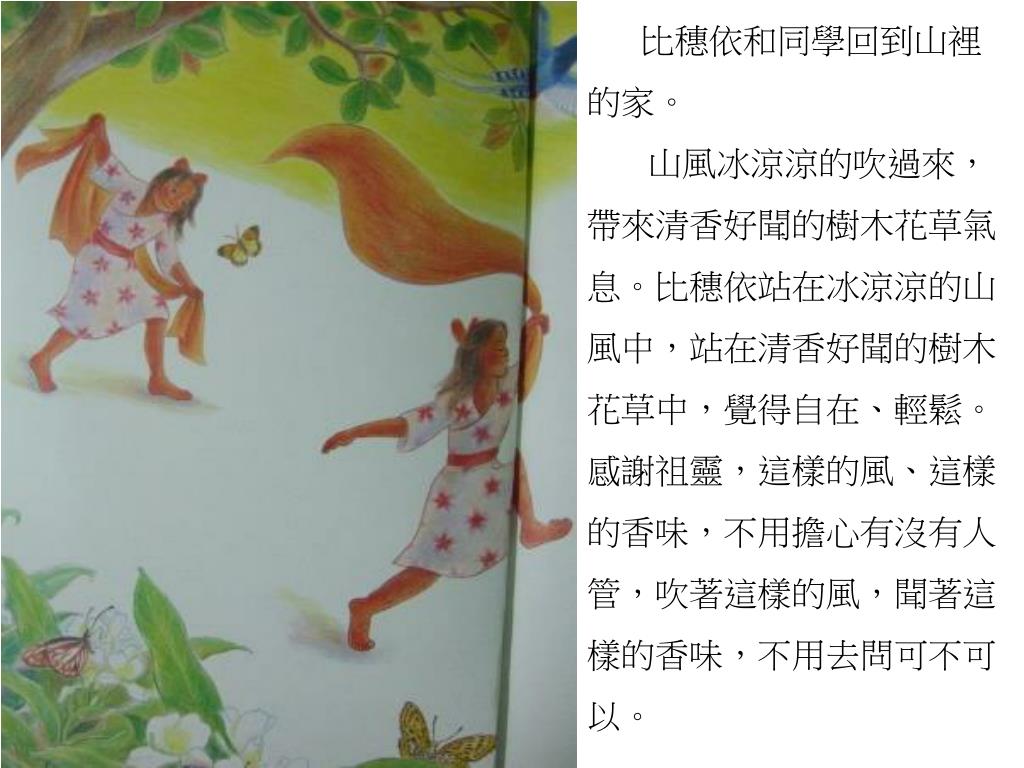 比穗依和同學回到山裡
的家。
山風冰涼涼的吹過來，
帶來清香好聞的樹木花草氣
息。比穗依站在冰涼涼的山
風中，站在清香好聞的樹木
花草中，覺得自在、輕鬆。
感謝祖靈，這樣的風、這樣
的香味，不用擔心有沒有人
管，吹著這樣的風，聞著這
樣的香味，不用去問可不可
以。